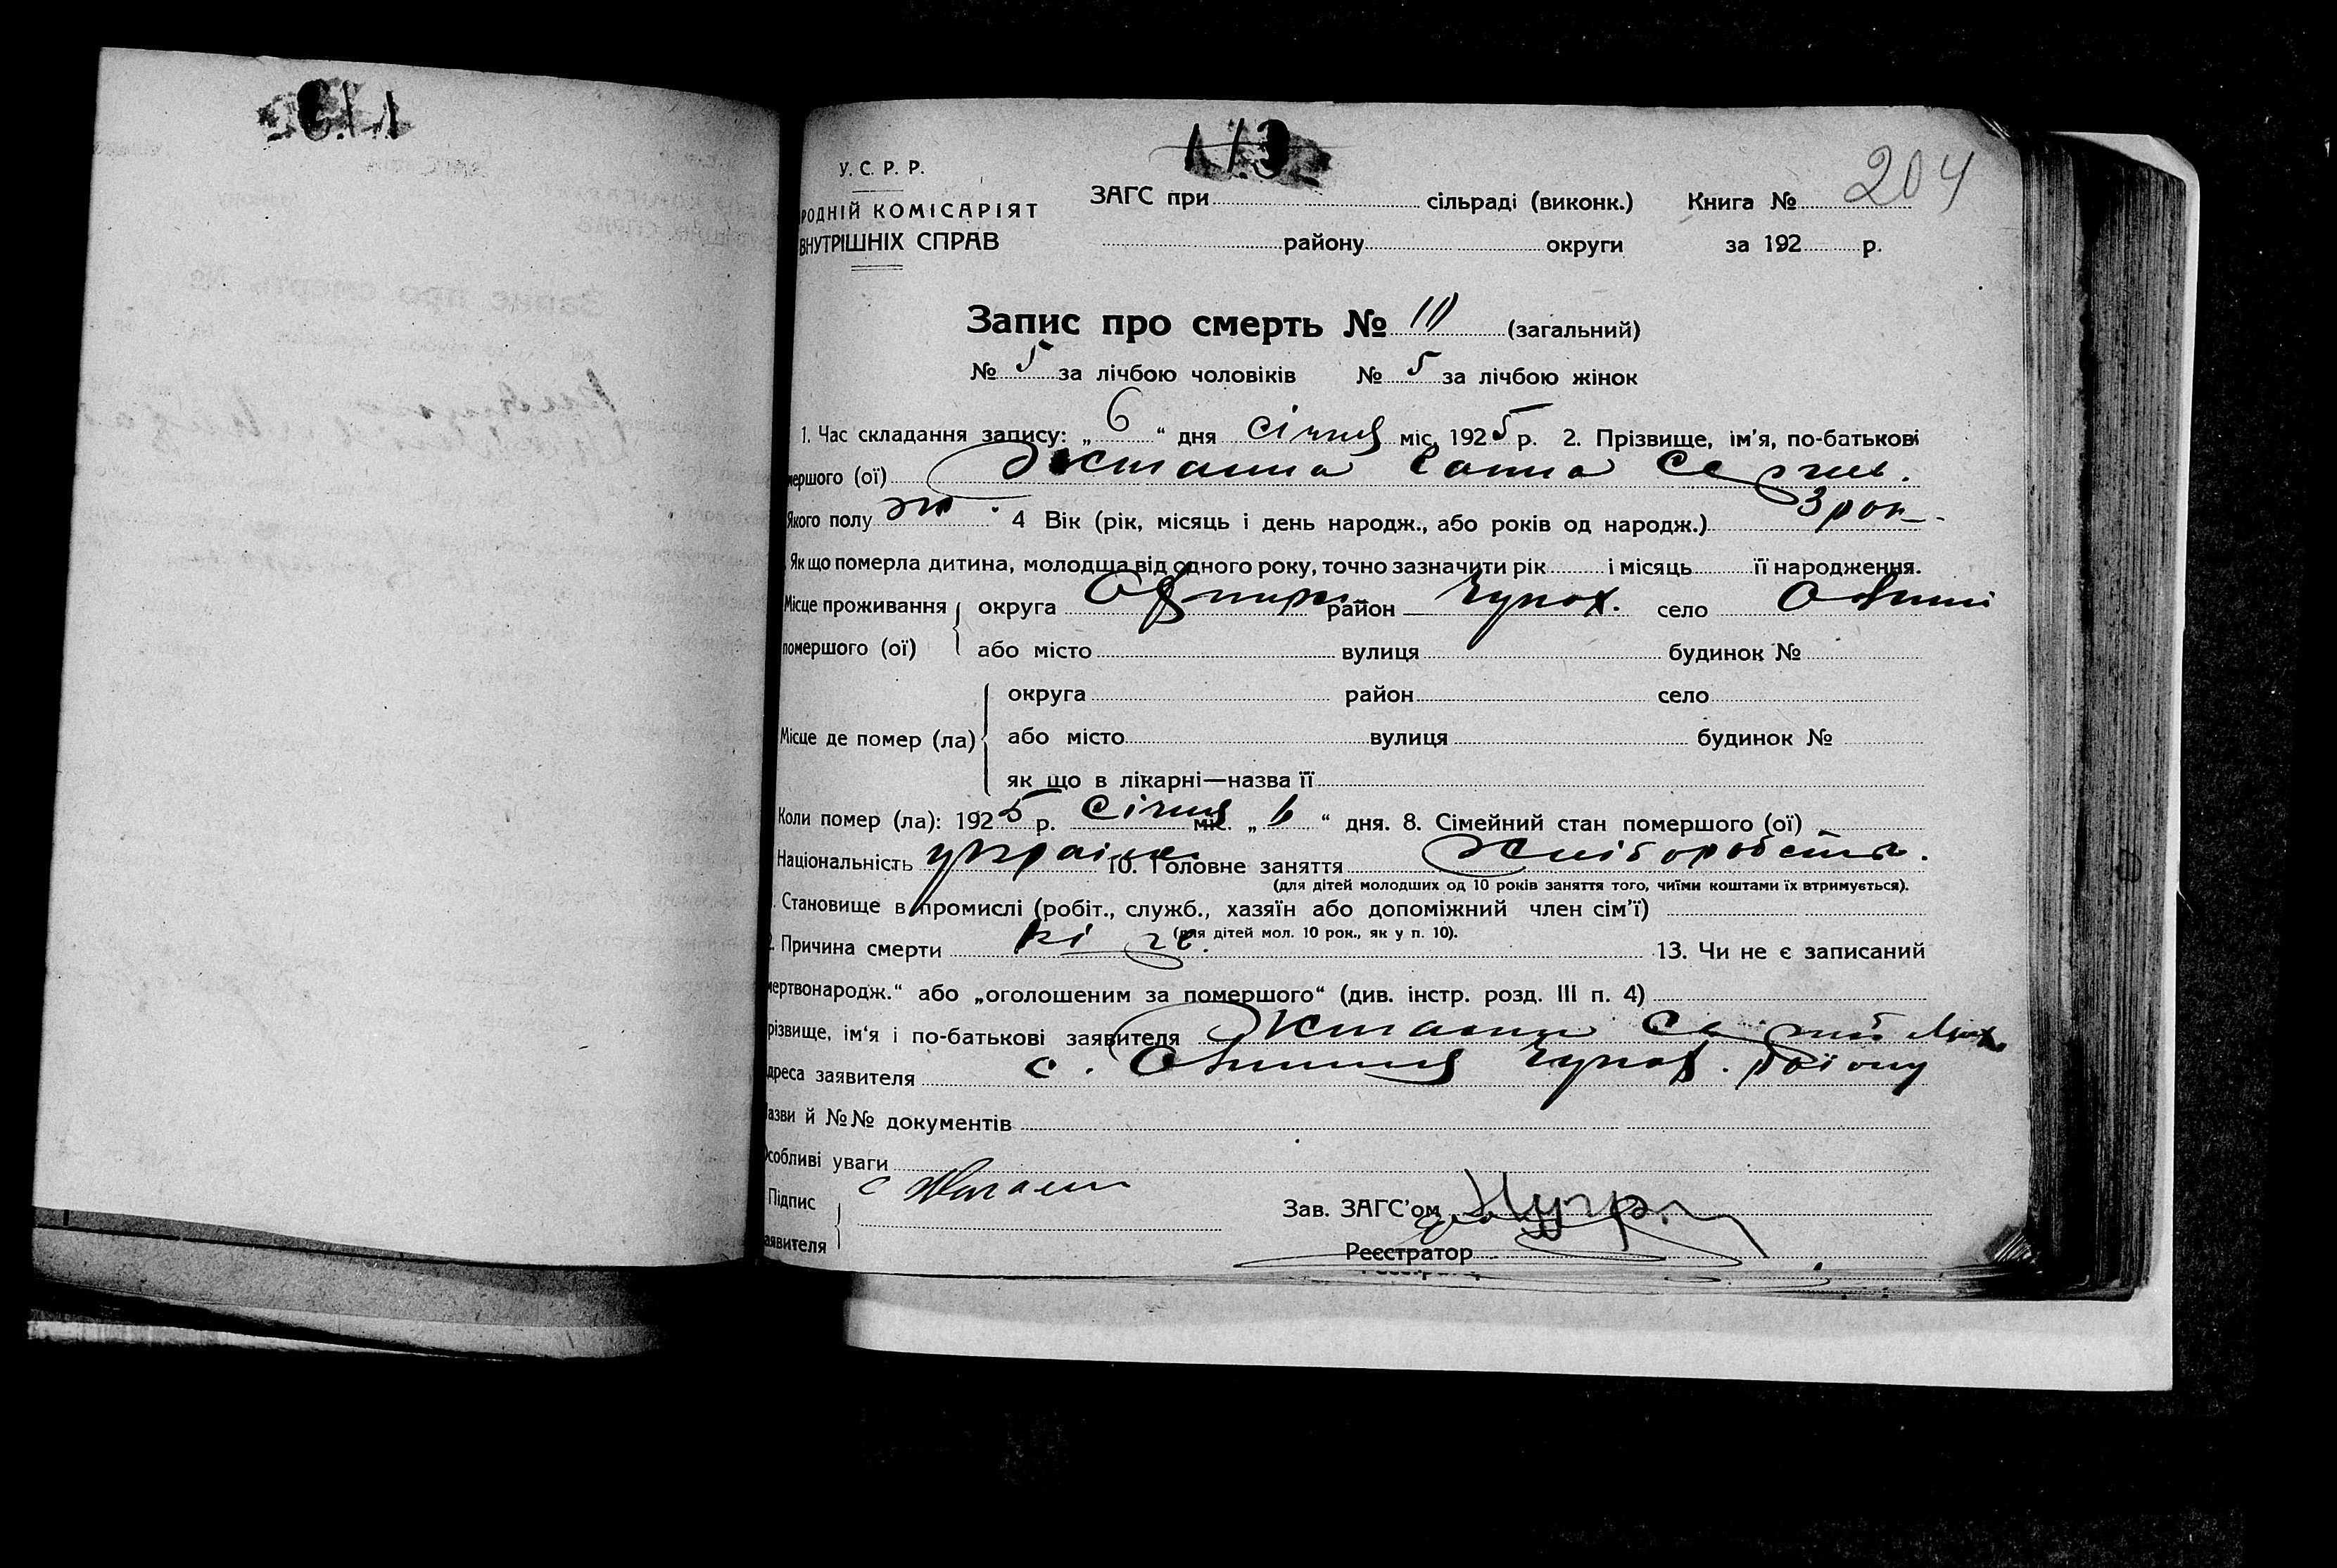 113
204
У. С. Р. Р.
РОДНІЙ КОМІСАРІЯТ
ВНУТРІШНІХ СПРАВ
ЗАГС при сільраді (виконк.) Книга №
району округи за 192 р.
Запис про смерть № 10 (загальний)
№ 5 за лічбою чоловіків № 5 за лічбою жінок
1. Час складання запису: „ 6 “ дня січня міс. 1925 р. 2. Прізвище, ім'я, по-батькові
мершого (ої)
Якого полу ж. 4 Вік (рік, місяць і день народж., або років од народж.) 3 рок
Як що померла дитина, молодща від одного року, точно зазначити рік і місяць її народження.
Місце проживання округа район Чупах. село
помершого (ої) або місто вулиця будинок №
округа район село
Місце де помер (ла) або місто вулиця будинок №
як що в лікарні—назва її
Коли помер (ла): 1925 р. січня міс. „ 6 “ дня. 8. Сімейний стан помершого (ої) —
Національність україн. 10. Головне заняття хліборобств.
(для дітей молодших од 10 років заняття того, чиїми коштами їх втримується).
. Становище в промислі (робіт., служб., хазяїн або допоміжний член сім'ї)
(для дітей мол. 10 рок., як у п. 10).
2. Причина смерти 13. Чи не є записаний
мертвонародж.“ або „оголошеним за помершого“ (див. інстр. розд. III п. 4)
різвище, ім'я і по-батькові заявителя
дреса заявителя с. Чупах. району
азви й №№ документів
Особливі уваги
Підпис
заявителя
Зав. ЗАГС'ом
Реєстратор